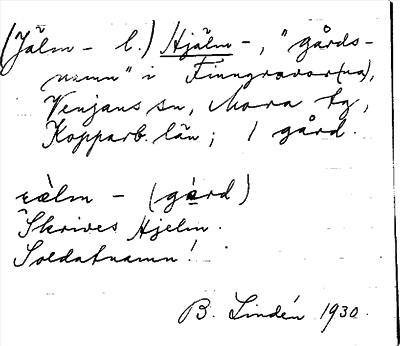 (Jälm- l.) Hjälm-, "gårds-
namn" i Finngruvor(na),
Venjans sn, Mora tg,
Kopparb. län; 1 gård.
Skrives Hjelm.
Soldatnamn!
B. Lindén 1930.